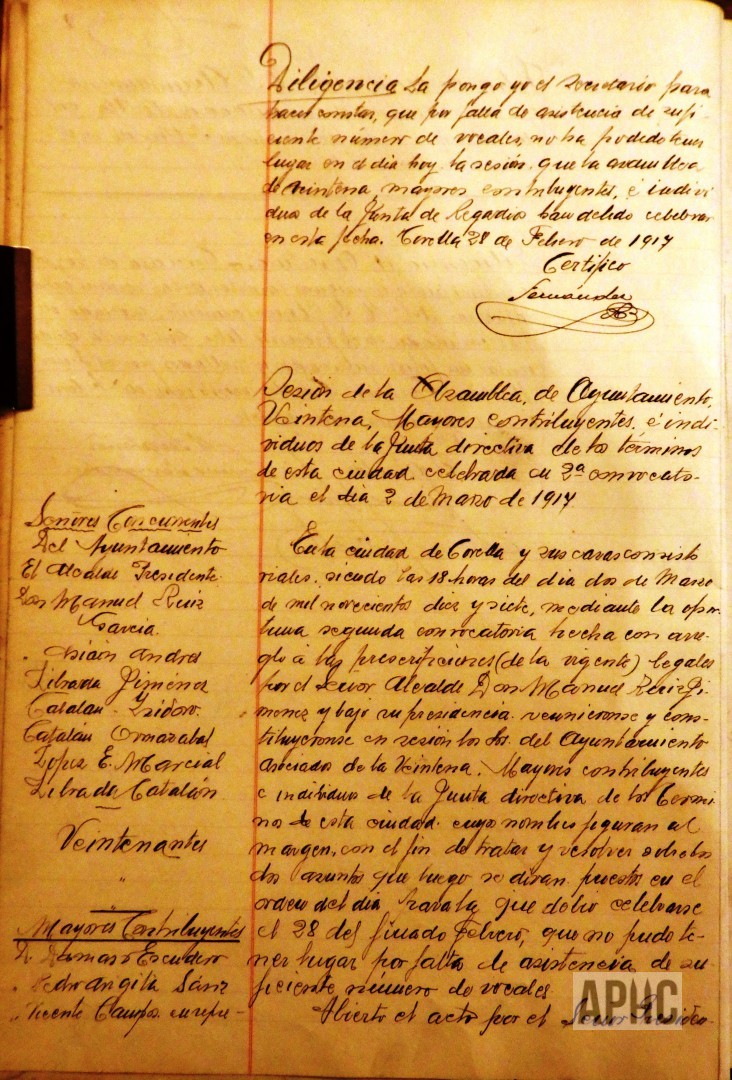 Diligencia La pongo yo el Secretario para
hacer constar, que por falta de asistencia de sufi-
ciente número de vocales, no ha podido tener
lugar en el dia hoy la sesión que la asamblea
de veintena, mayores contribuyentes, é indivi
duos de la Junta de Regadios han debido celebrar
en esta fecha. Corella 28 de Febrero de 1917
Certifico
Fernandez
Sesión de la Asamblea, de Ayuntamiento,
Veintena, Mayores contribuyentes, é indi-
viduos de la Junta directiva de los términos
de esta ciudad celebrada en 2ª convocato-
ria el dia 2 de Marzo de 1917
Señores Concurrentes
Del Ayuntamiento
El Alcalde Presidente
Don Manuel Ruiz
Garcia
" Andres
Librada Jiménez
Catalán Isidoro
Catalán Ormazabal
Lopez E. Marcial
Librada Catalán
Veintenantes
"
Mayores Contribuyentes
D. Damaso Escudero
" Pedro Angel Sanz
" Vicente Campos en repre-
En la ciudad de Corella y sus casas consisto
riales, siendo las 18 horas del dia dos de Marzo
de mil novecientos diez y siete, mediante la opor
tuna segunda convocatoria hecha con arre-
glo á las prescripciones (de la vigente) legales
por el Señor Alcalde Don Manuel Ruiz Ji
menez y bajo su presidencia reunieronse y cons-
tituyeronse en sesión los Srs. del Ayuntamiento
asociados de la Veintena, Mayores contribuyentes
e individuos de la Junta directiva de los Termi
nos de esta ciudad cuyos nombres figuran al
margen, con el fin de tratar y resolver sobre los
dos asuntos que luego se diran puestos en el
orden del dia para la que debio celebrarse
el 28 del finado Febrero, que no pudo te-
ner lugar por falta de asistencia de su-
ficiente número de vocales.
Abierto el acto por el Señor Presiden-
APHC